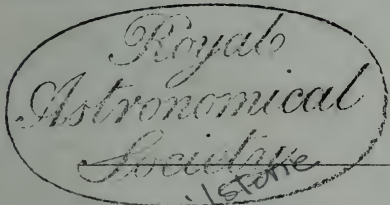 Royal
Astronomical
Society